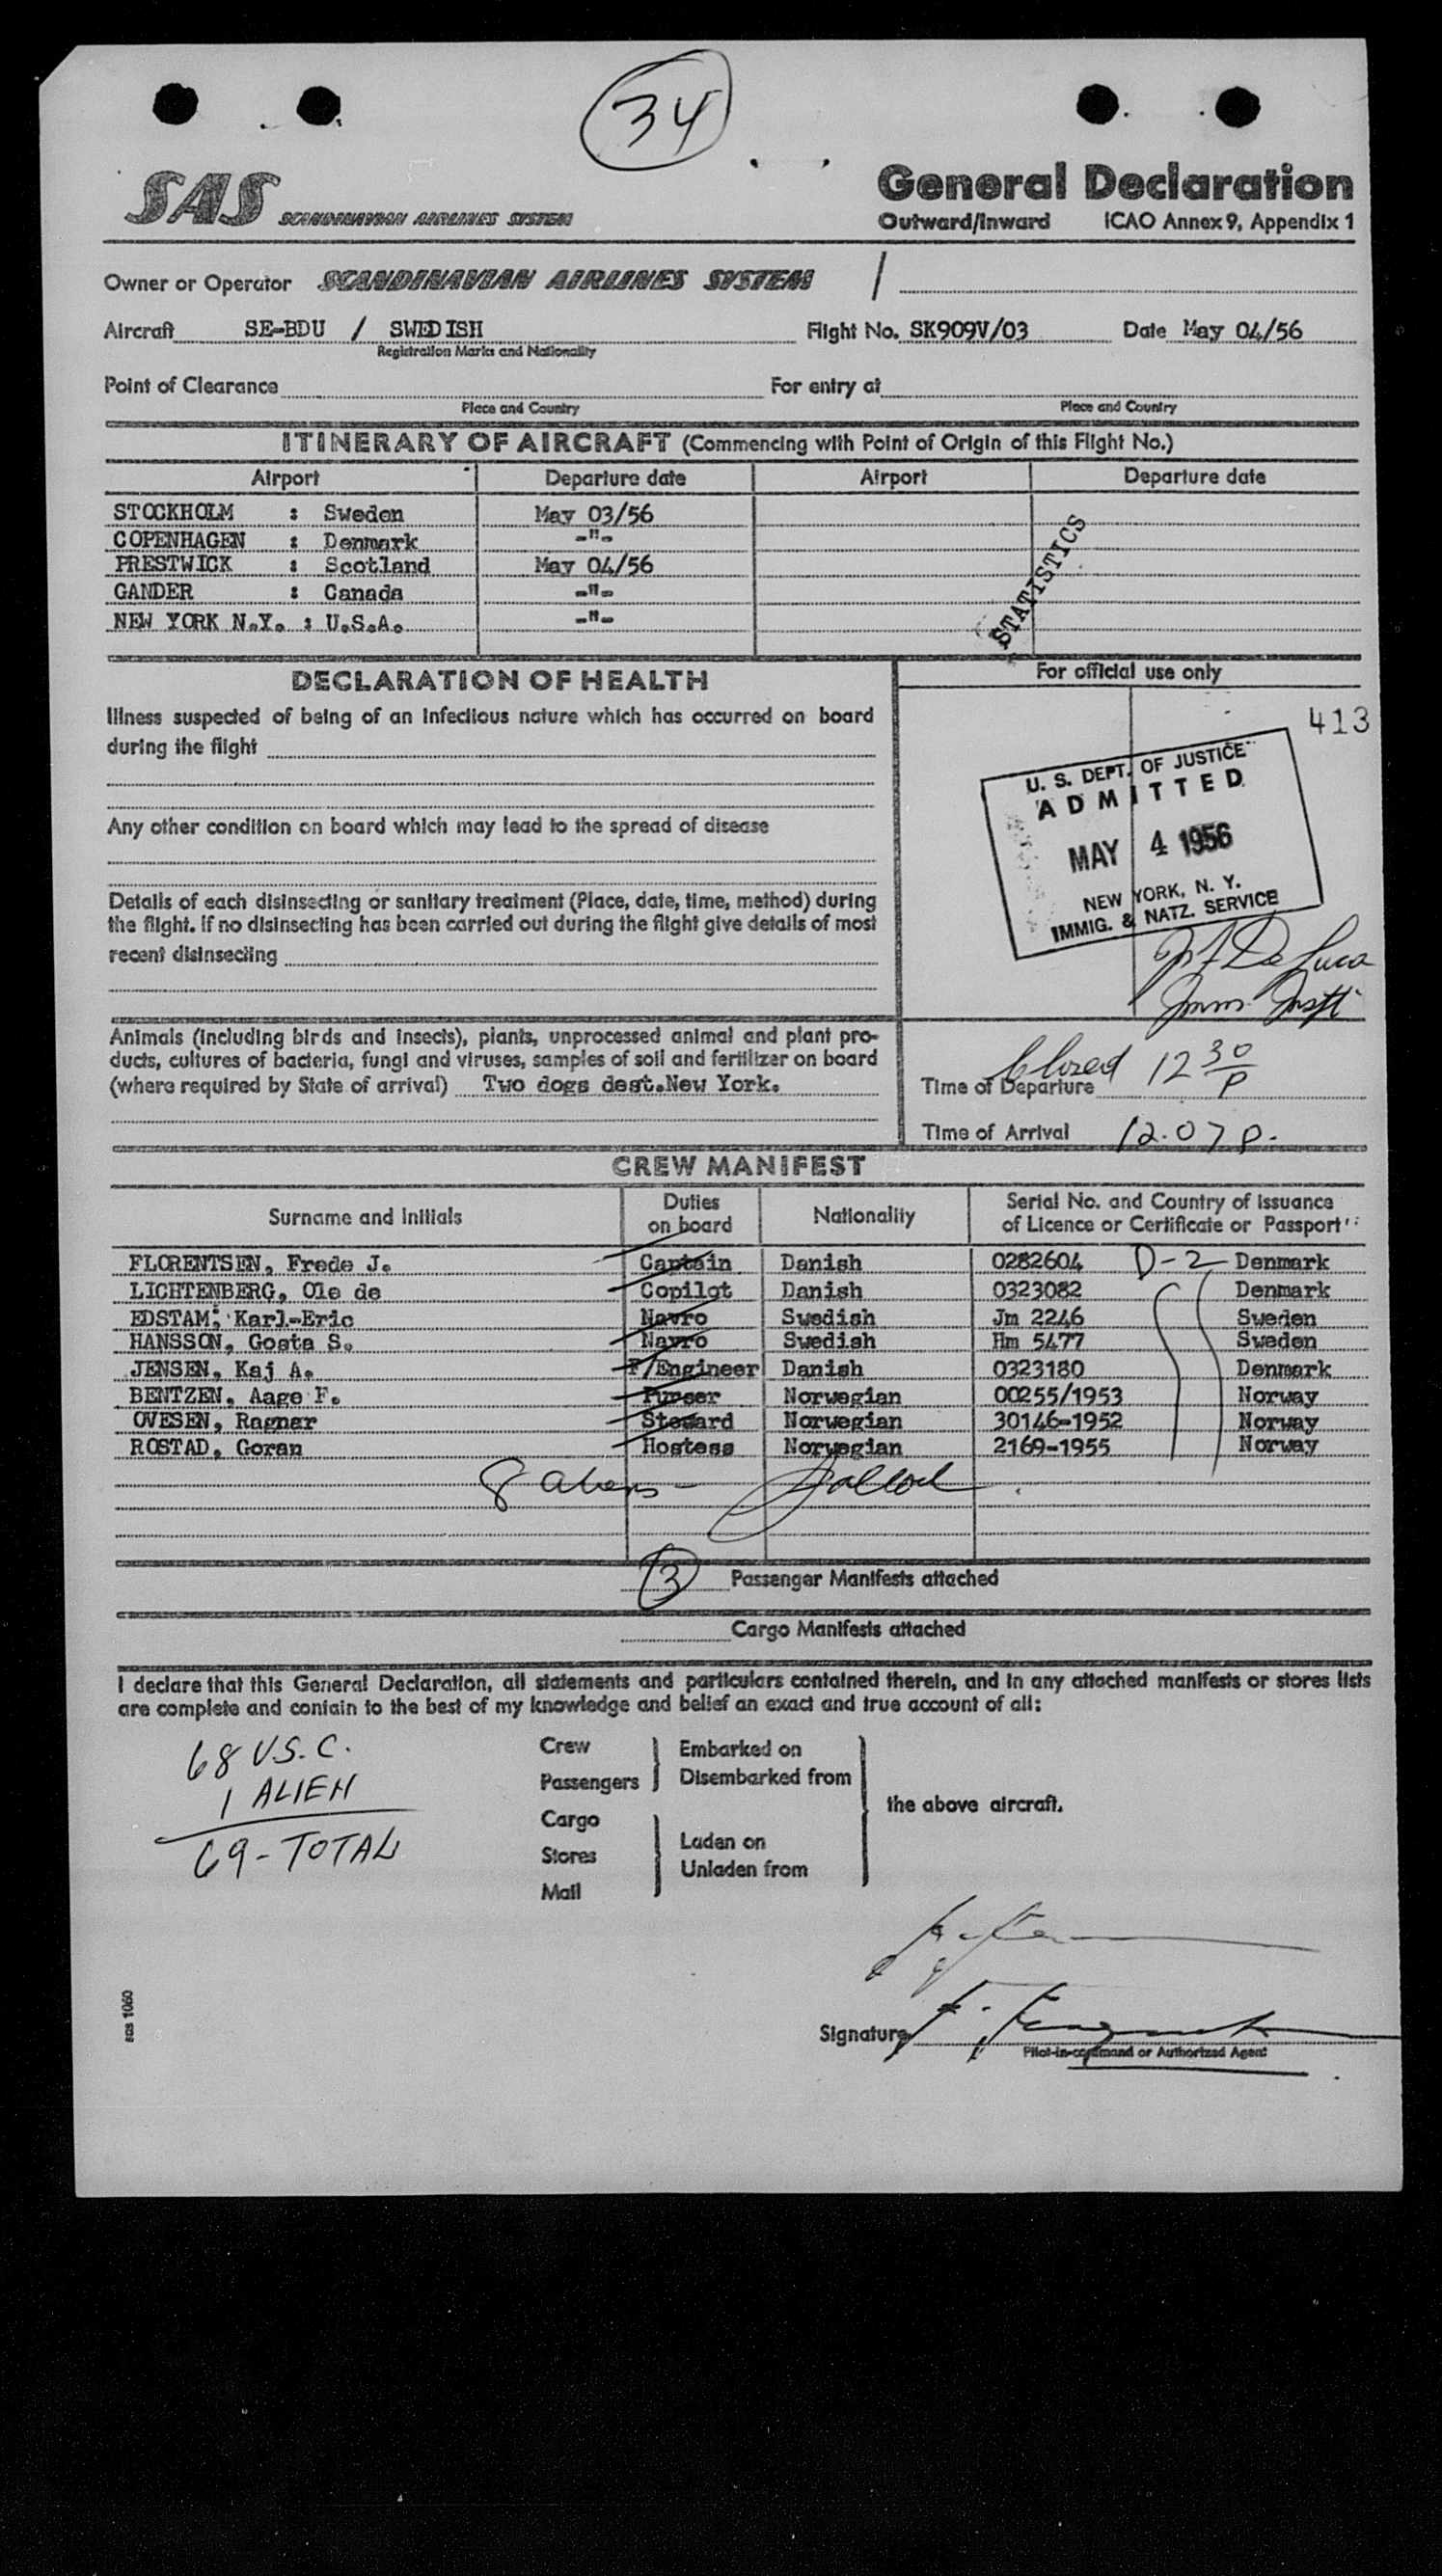 34
SAS SCANDINAVIAN AIRLINES SYSTEM
General Declaration
Outward/Inward ICAO Annex 9, Appendix 1
Owner or Operator SCANDINAVIAN AIRLINES SYSTEM /
Aircraft SE-BDU / SWEDISH Flight No. SK909V/03 Date May 04/56
Registration Marks and Nationality
Point of Clearance For entry at
Place and Country Place and Country
ITINERARY OF AIRCRAFT (Commencing with Point of Origin of this Flight No.)
Airport Departure date Airport Departure date
STOCKHOLM : Sweden May 03/56
COPENHAGEN : Denmark -"-
PRESTWICK : Scotland May 04/56
GANDER : Canada -"-
NEW YORK N.Y. : U.S.A. -"-
STATISTICS
DECLARATION OF HEALTH
Illness suspected of being of an infectious nature which has occurred on board
during the flight
Any other condition on board which may lead to the spread of disease
Details of each disinsecting or sanitary treatment (Place, date, time, method) during
the flight. If no disinsecting has been carried out during the flight give details of most
recent disinsecting
For official use only
413
U. S. DEPT. OF JUSTICE
ADMITTED
MAY 4 1956
NEW YORK, N. Y.
IMMIG. & NATZ. SERVICE
De Luca
Imm. Inspt
Animals (including birds and insects), plants, unprocessed animal and plant pro-
ducts, cultures of bacteria, fungi and viruses, samples of soil and fertilizer on board
(where required by State of arrival) Two dogs dest.New York.
Closed 12 30 P
Time of Departure
Time of Arrival 12.07 P.
CREW MANIFEST
Surname and Initials Duties on board Nationality Serial No. and Country of Issuance of Licence or Certificate or Passport
FLORENTSEN, Frede J. Captain Danish 0282604 D-2 Denmark
LICHTENBERG, Ole de Copilot Danish 0323082 Denmark
EDSTAM, Karl-Eric Navro Swedish Jm 2246 Sweden
HANSSON, Gosta S. Navro Swedish Hm 5477 Sweden
JENSEN, Kaj A. F/Engineer Danish 0323180 Denmark
BENTZEN, Aage F. Purser Norwegian 00255/1953 Norway
OVESEN, Ragnar Steward Norwegian 30146-1952 Norway
ROSTAD, Goran Hostess Norwegian 2169-1955 Norway
8 aliens -
3 Passenger Manifests attached
Cargo Manifests attached
I declare that this General Declaration, all statements and particulars contained therein, and in any attached manifests or stores lists
are complete and contain to the best of my knowledge and belief an exact and true account of all:
68 U.S.C.
1 ALIEN
69 - TOTAL
Crew
Passengers
Cargo
Stores
Mail
Embarked on
Disembarked from
Laden on
Unladen from
the above aircraft.
sas 1060
Signature
Pilot-in-command or Authorized Agent